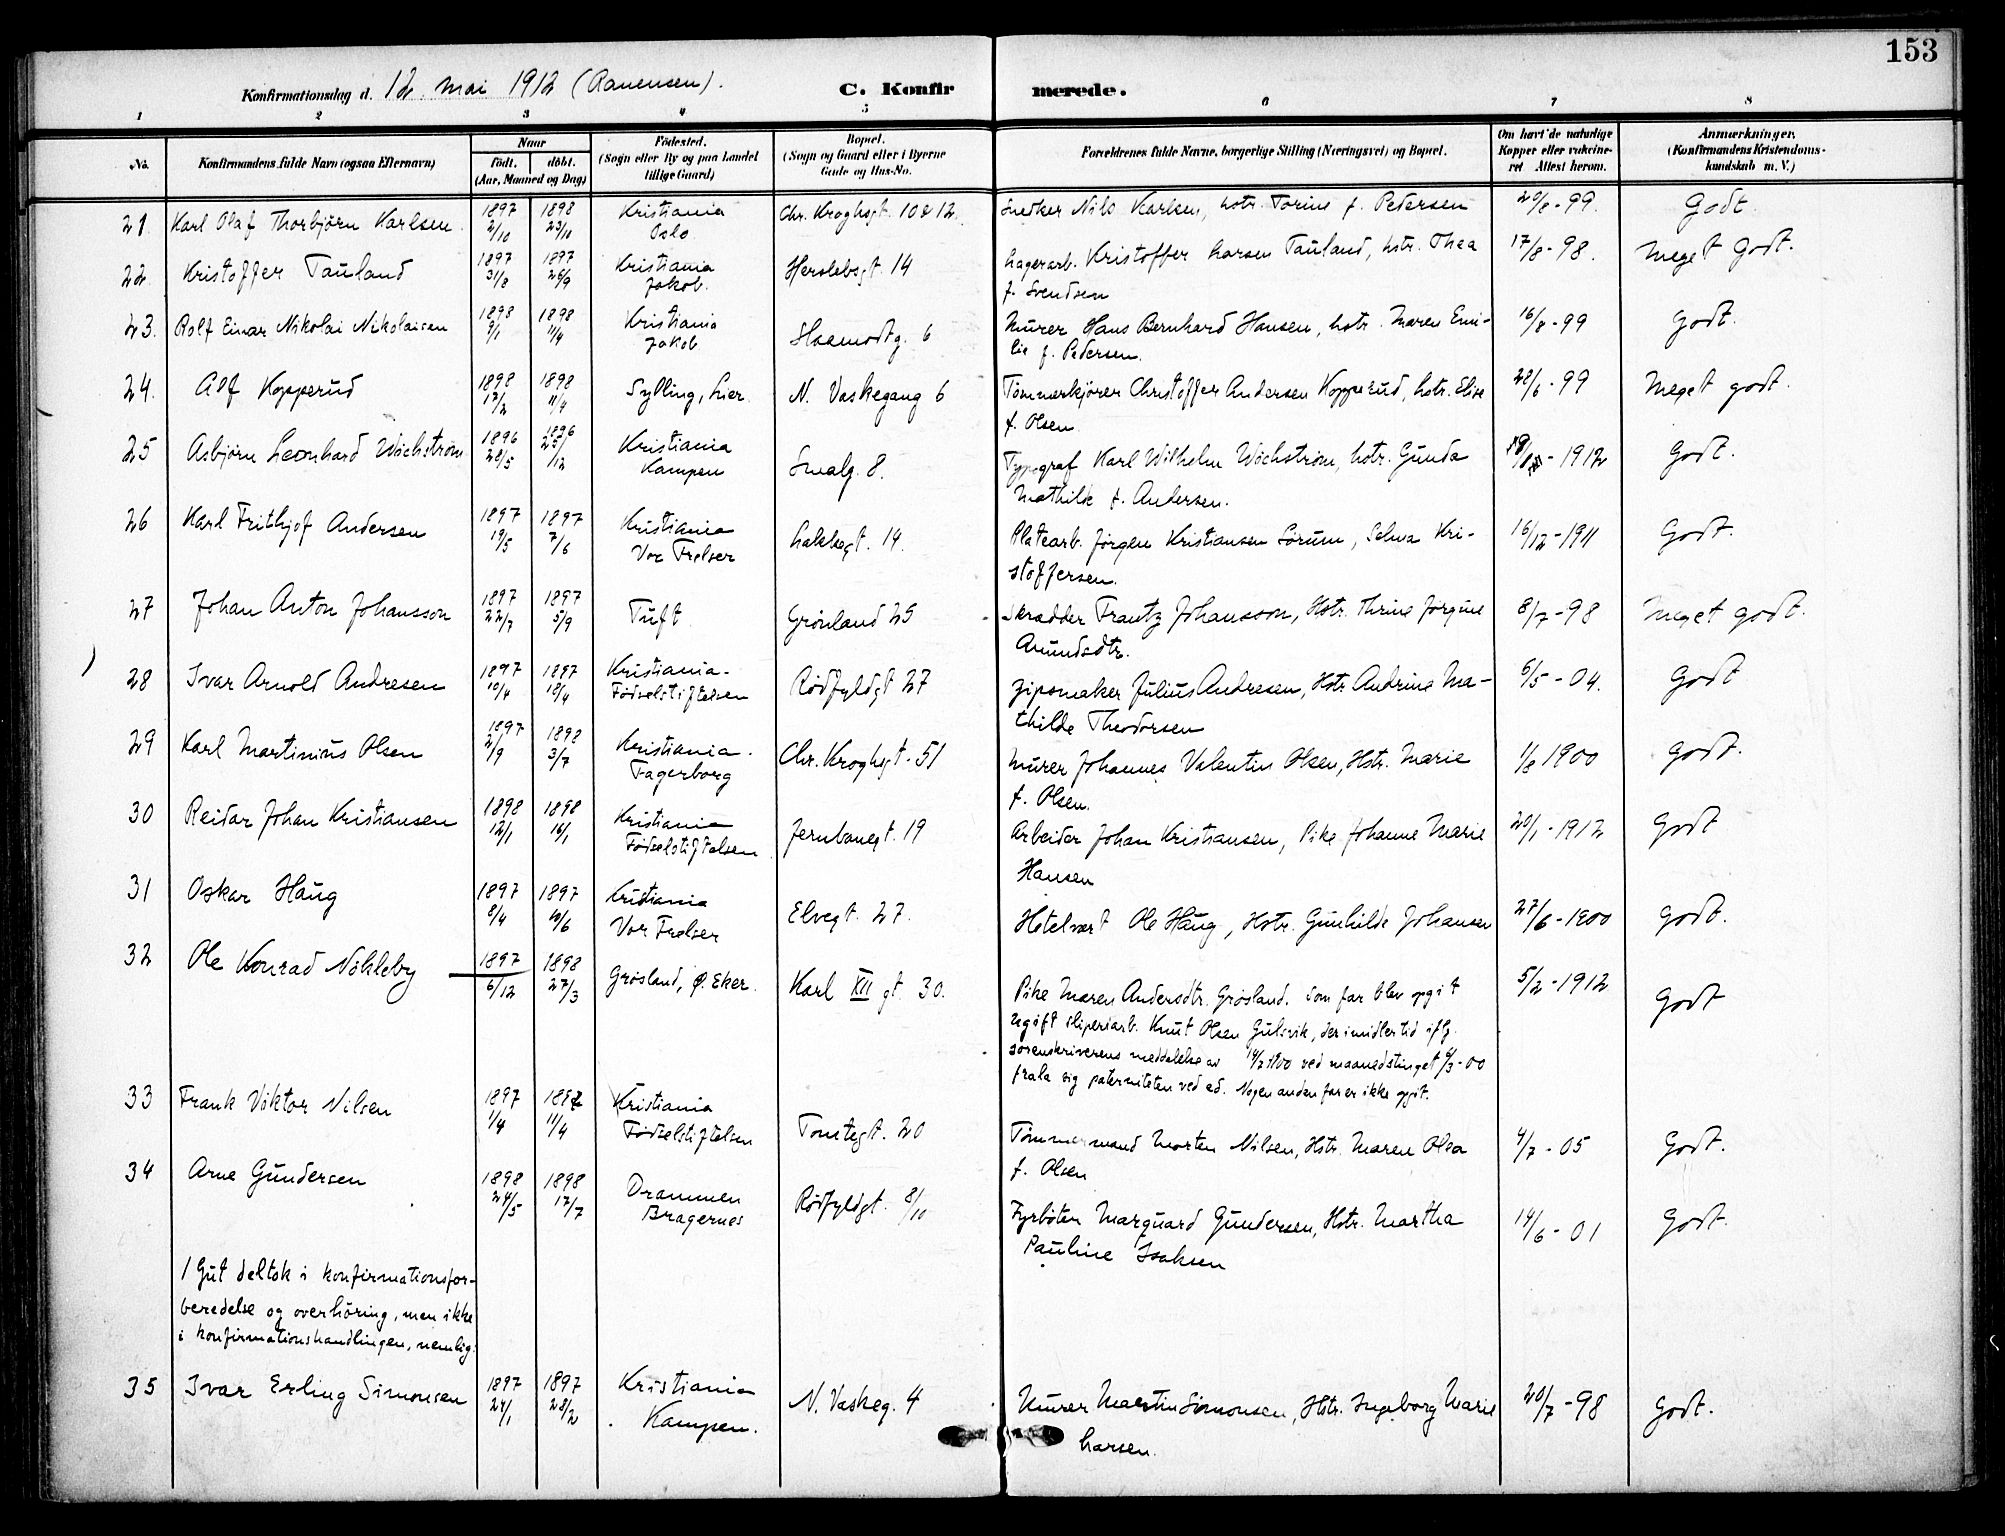 153
Konfirmationsdag d. 12. mai 1912 (Aanensen). C. Konfirmerede.
1 2 3 4 5 6 7 8
No. Konfirmandens fulde Navn (ogsaa Efternavn) Naar født. døbt. (Aar, Maaned og Dag) Fødested. (Sogn eller By og paa Landet tillige Gaard) Bopæl. (Sogn og Gaard eller i Byerne Gade og Hus-No. Forældrenes fulde Navne, borgerlige Stilling (Næringsvei) og Bopæl. Om havt de naturlige Kopper eller vakcineret Attest herom. Anmærkninger. (Konfirmandens Kristendomskundskab m. V.)
21 Karl Olaf Thorbjørn Karlsen. 1897 2/10 1898 23/10 Kristiania Oslo. Chr. Kroghsgt. 10 & 12. Snedker Nils Karlsen, hstr. Torine f. Pedersen 20/8-99. Godt.
22 Kristoffer Tauland 1897 31/8 1897 26/9 Kristiania Jakob. Herslebsgt. 14 Lagerarb. Kristoffer Larsen Tauland, hstr. Thea
f. Svendsen 17/8-98. Meget Godt.
23. Rolf Einar Nikolai Nikolaisen 1898 9/1 1898 11/4 Kristiania Jakob Steenmodtg. 6 Murer Hans Bernhard Hansen, hstr. Maren Emi-
lie f. Pedersen. 16/8-99 Godt.
24. Alf Kopperud 1898 12/2 1898 11/4 Sylling, Lier. N. Vaskegang 6 Tømmerkjører Christoffer Andersen Kopperud, hstr. Elise
f. Olsen 28/6-99 Meget godt.
25 Asbjørn Leonhard Wøchstrøm 1896 28/5 1896 25/12 Kristiania Kampen Smalg. 8. Typograf Karl Wilhelm Wøchstrøm, hstr. Gunda
Mathilde f. Andersen. -1912 Godt.
26 Karl Frithjof Andersen 1897 19/5 1897 7/6 Kristiania Vor Frelser Lakkegt. 19. Platearb. Jørgen Kristiansen Sørum, Selma Kri-
stoffersen. 16/12-1911 Godt.
27 Johan Anton Johansson 1897 22/7 1897 5/9 Tuft. Grønland 25 Skrædder Frantz Johansson, Hstr. Thrine Jørgine
Amundsdtr. 8/7-98 Meget godt.
28 Ivar Arnold Andresen 1897 10/4 1897 18/4 Kristiania. Fødselstiftelsen Rødfyldgt 27 Gipsmaker Julius Andresen, Hstr. Andrine Ma-
thilde Theodorsen 6/5-04. Godt
29 Karl Martinius Olsen 1897 2/9 1898 3/7 Kristiania. Fagerborg Chr. Kroghgt. 51 Murer Johannes Valentin Olsen, Hstr. Marie
f. Olsen. 1/8 1900 Godt.
30 Reidar Johan Kristiansen 1898 12/1 1898 16/1 Kristiania Fødselstiftelsen. Jernbanegt. 19 Arbeider Johan Kristiansen, Pike Johanne Marie
Hansen 20/1-1912 Godt
31 Oskar Haug 1897 8/4 1897 /6 Kristiania Vor Frelser Elvegt. 27. Hotelvært Ole Haug, Hstr. Gunhilde Johansen 27/6-1900 Godt.
32 Ole Konrad Nökleby 1897 6/12 1898 27/3 Grøsland, Ø. Eker. Karl XII gt. 30. Pike Maren Andersdtr. Grøsland. Som far blev opgit
ugift sliperiarb. Knut Olsen Gulsvik, der imidlertid iflg.
sorenskriverens meddelelse av 14/2 1900 ved maanedstinget 6/3-00
frala sig paterniteten ved ed. Nogen anden far er ikke opgit. 5/2-1912 Godt
33 Frank Viktor Nilsen 1897 1/4 1897 11/4 Kristiania Fødselstiftelsen Tomtegt. 20 Tømmermand Morten Nilsen, Hstr. Maren Olsa
f. Olsen 4/7-05 Godt.
34 Arne Gundersen 1898 24/5 1898 17/7 Drammen Bragernes Rødfyldgt. 8/10 Fyrbøter Marquard Gundersen, Hstr. Martha
Pauline Isaksen 14/6-01 Godt.
1 Gut deltok i konfirmationsfor-
beredelse og overhöring, men ikke
i konfirmationshandlingen, nemlig:
35 Ivar Erling Simonsen 1897 24/1 1897 28/2 Kristiania Kampen. N. Vaskeg. 4 Murer Martin Simonsen, Hstr. Ingeborg Marie
Larsen. 20/7-98 Godt.